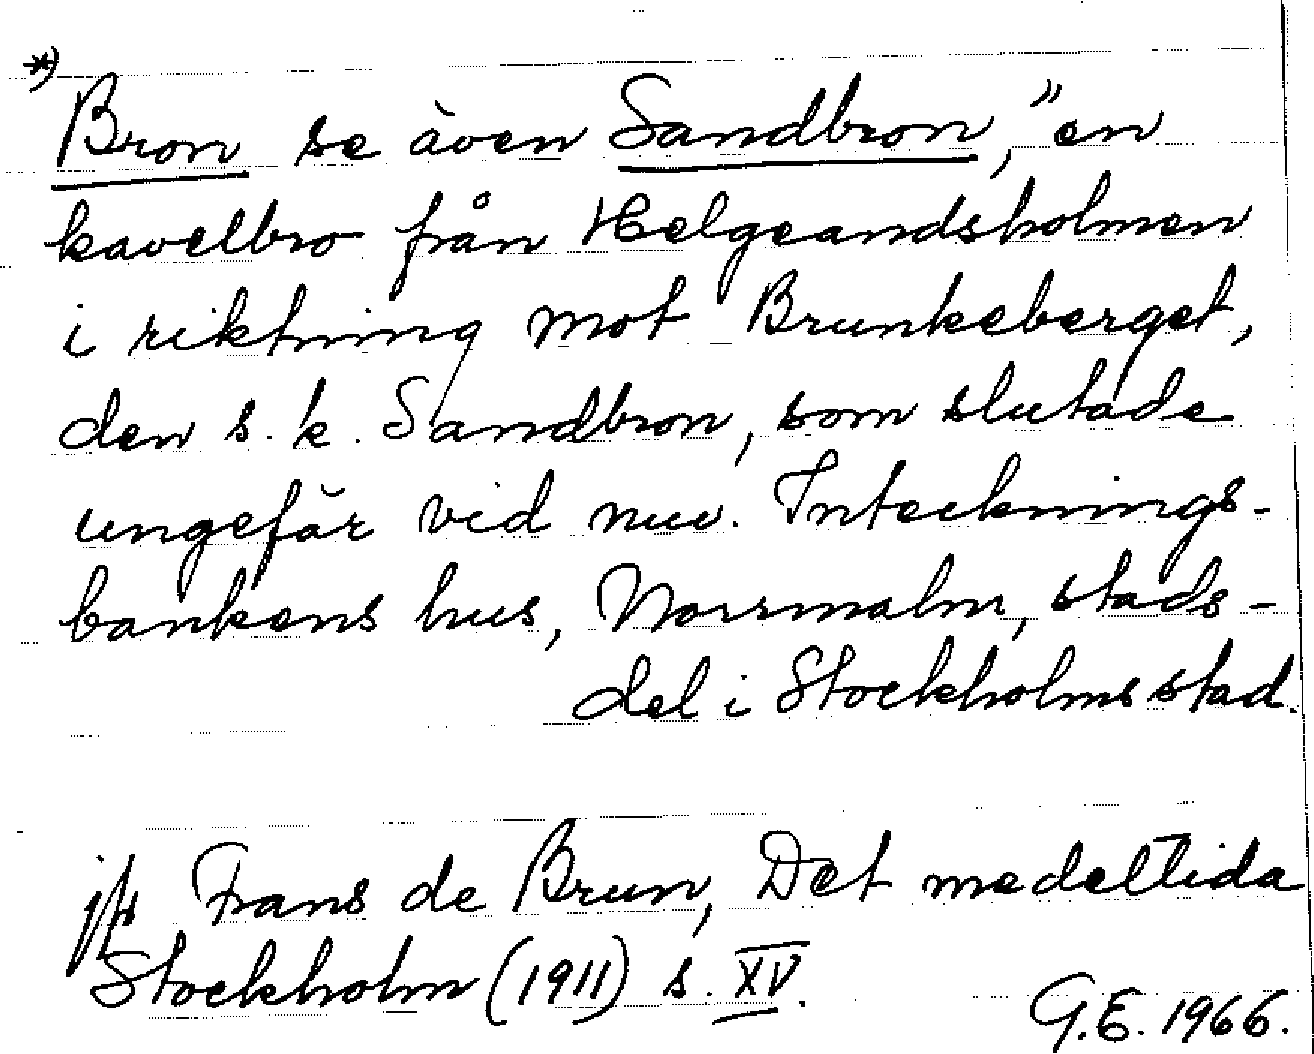 *)
Bron se även Sandbron, "en
kavelbro från Helgeandsholmen
i riktning mot Brunkeberget,
den s.k. Sandbron, som slutade
ungefär vid nuv. Intecknings-
bankens hus, Norrmalm, stads-
del i Stockholms stad.
jfr Frans de Brun, Det medeltida
Stockholm (1911) s. XV.
G.E. 1966.